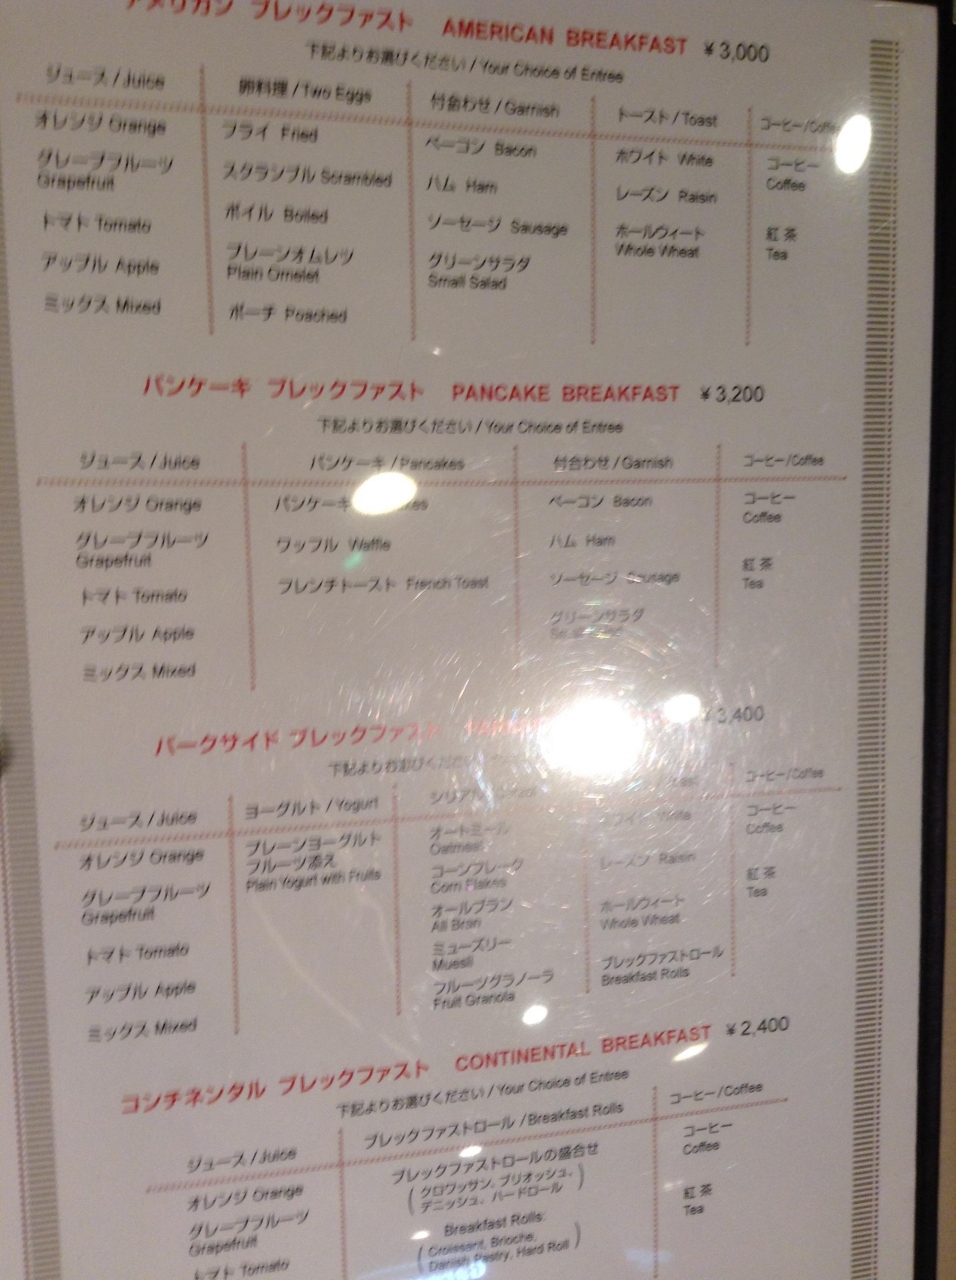 アメリカン ブレックファスト AMERICAN BREAKFAST ¥3,000
下記よりお選びください / Your Choice of Entree
ジュース / Juice
オレンジ Orange
グレープフルーツ
Grapefruit
トマト Tomato
アップル Apple
ミックス Mixed
卵料理 / Two Eggs
フライ Fried
スクランブル Scrambled
ボイル Boiled
プレーンオムレツ
Plain Omelet
ポーチ Poached
付合わせ / Garnish
ベーコン Bacon
ハム Ham
ソーセージ Sausage
グリーンサラダ
Small Salad
トースト / Toast
ホワイト White
レーズン Raisin
ホールウィート
Whole Wheat
コーヒー / Coffee
コーヒー
Coffee
紅茶
Tea
パンケーキ ブレックファスト PANCAKE BREAKFAST ¥3,200
下記よりお選びください / Your Choice of Entree
ジュース / Juice
オレンジ Orange
グレープフルーツ
Grapefruit
トマト Tomato
アップル Apple
ミックス Mixed
パンケーキ / Pancakes
パンケーキ
ワッフル Waffle
フレンチトースト French Toast
付合わせ / Garnish
ベーコン Bacon
ハム Ham
ソーセージ Sausage
グリーンサラダ
コーヒー / Coffee
コーヒー
Coffee
紅茶
Tea
パークサイド ブレックファスト ¥3,400
下記よりお選びください
ジュース / Juice
オレンジ Orange
グレープフルーツ
Grapefruit
トマト Tomato
アップル Apple
ミックス Mixed
ヨーグルト / Yogurt
プレーンヨーグルト
フルーツ添え
Plain Yogurt with Fruits
シリアル
オートミール
Oatmeal
コーンフレーク
Corn Flakes
オールブラン
All Bran
ミューズリー
Muesli
フルーツグラノーラ
Fruit Granola
White
レーズン Raisin
ホールウィート
Whole Wheat
ブレックファストロール
Breakfast Rolls
コーヒー / Coffee
コーヒー
Coffee
紅茶
Tea
コンチネンタル ブレックファスト CONTINENTAL BREAKFAST ¥2,400
下記よりお選びください / Your Choice of Entree
ジュース / Juice
オレンジ Orange
グレープフルーツ
Grapefruit
トマト Tomato
ブレックファストロール / Breakfast Rolls
ブレックファストロールの盛合せ
(クロワッサン、ブリオッシュ、
デニッシュ、ハードロール)
Breakfast Rolls:
(Croissant, Brioche,
Danish Pastry, Hard Roll)
コーヒー / Coffee
コーヒー
Coffee
紅茶
Tea